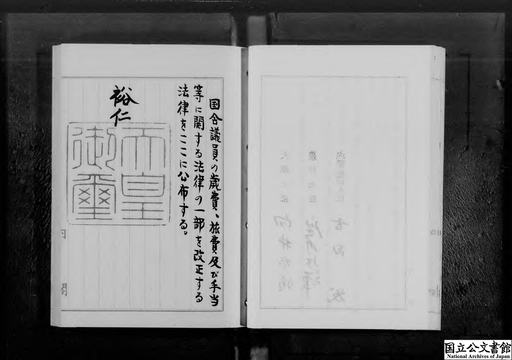 国会議員の歳費、旅費及び手当
等に関する法律の一部を改正する
法律をここに公布する。
裕仁
天皇
御璽
内
閣
国立公文書館
National Archives of Japan